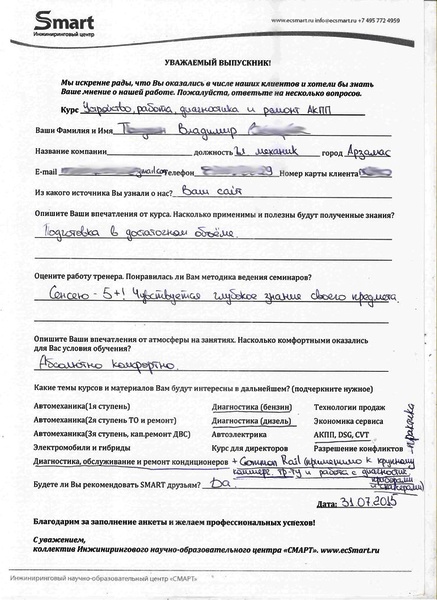 Smart
Инжиниринговый центр
www.ecsmart.ru info@ecsmart.ru +7 495 772 4959
УВАЖАЕМЫЙ ВЫПУСКНИК!
Мы искренне рады, что Вы оказались в числе наших клиентов и хотели бы знать
Ваше мнение о нашей работе. Пожалуйста, ответьте на несколько вопросов.
Курс Устройство, работа, диагностика и ремонт АКПП
Ваши Фамилия и Имя Владимир
Название компании должность гл механик город Арзамас
E-mail Телефон 29 Номер карты клиента
Из какого источника Вы узнали о нас? Ваш сайт
Опишите Ваши впечатления от курса. Насколько применимы и полезны будут полученные знания?
Подготовка в достаточном объёме.
Оцените работу тренера. Понравилась ли Вам методика ведения семинаров?
Сенсею - 5+! Чувствуется глубокое знание своего предмета.
Опишите Ваши впечатления от атмосферы на занятиях. Насколько комфортными оказались
для Вас условия обучения?
Абсолютно комфортно.
Какие темы курсов и материалов Вам будут интересны в дальнейшем? (подчеркните нужное)
Автомеханика(1я ступень) Диагностика (бензин) Технологии продаж
Автомеханика(2я ступень ТО и ремонт) Диагностика (дизель) Экономика сервиса
Автомеханика(3я ступень, кап.ремонт ДВС) Автоэлектрика АКПП, DSG, CVT - практика
Электромобили и гибриды Курс для директоров Разрешение конфликтов
Диагностика, обслуживание и ремонт кондиционеров + Common Rail (применимо к крупному
коммерч. тр-ту и работа с диагност.
приборами
и сканерами)
Будете ли Вы рекомендовать SMART друзьям? Да.
Дата: 31.07.2015
Благодарим за заполнение анкеты и желаем профессиональных успехов!
С уважением,
коллектив Инжинирингового научно-образовательного центра «СМАРТ». www.ecSmart.ru
Инжиниринговый научно-образовательный центр «СМАРТ»